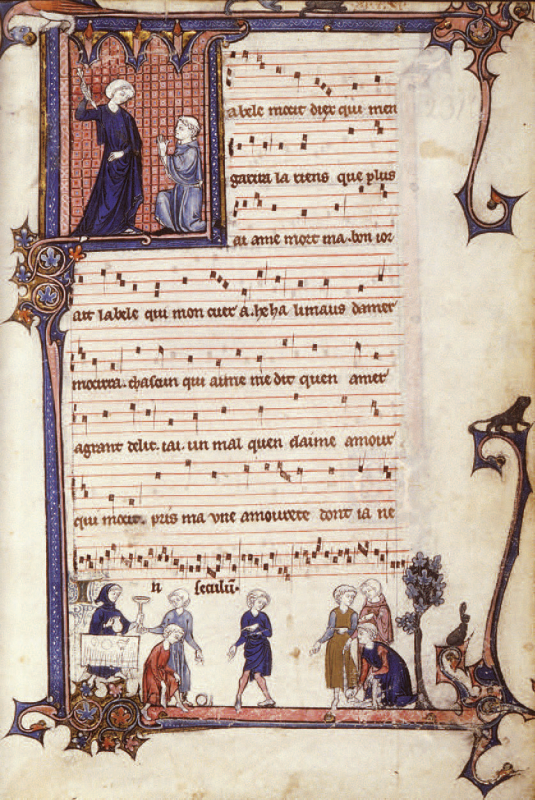 abele mocit diex qui men
garira la riens que plus
ai ame mort ma. bon ior
ait labele qui mon cuer a. he ha limaus damer
mocirra. chascun qui aime me dit quen amer
agrant delit. iai. un mal quen claime amour
qui mocit. pris ma vne amourete dont ia ne
n seculũ.